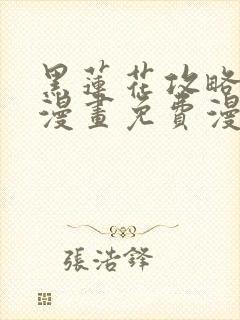 黑蓮花攻略
漫畫免費漫
張浩鋒